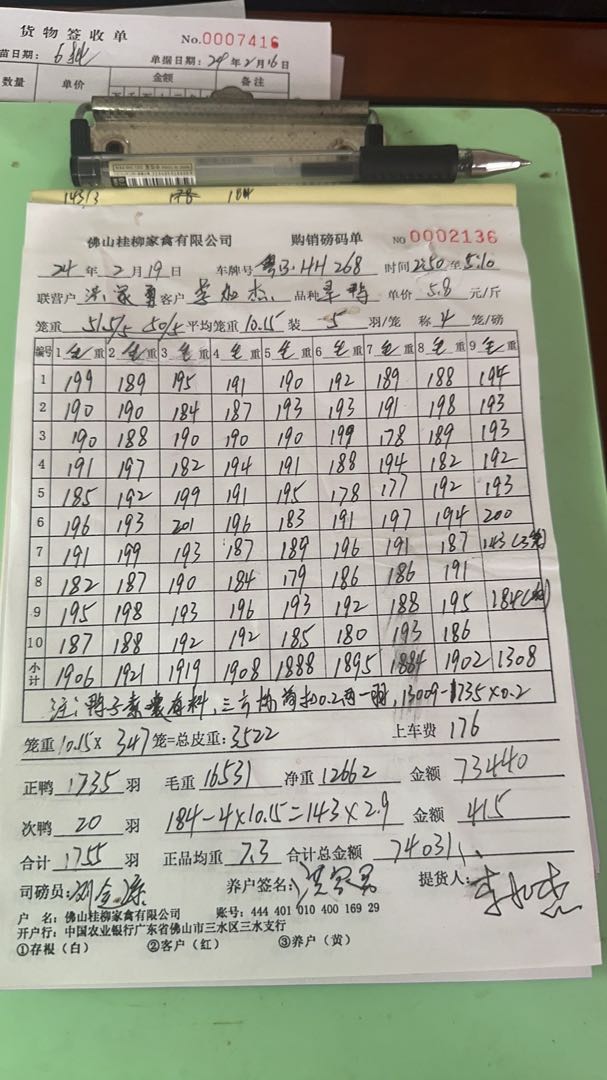 货物签收单 No.0007416
苗日期： 单据日期：24年2月16日
数量 单价 金额 备注
14313 178 184
佛山桂柳家禽有限公司 购销磅码单 NO 0002136
24年2月19日 车牌号粤B·HH268 时间2:50至5:10
联营户 客户 品种 鸭 单价5.8元/斤
笼重51.5/5 50/5平均笼重10.15装5羽/笼 称4笼/磅
编号 1毛重 2毛重 3毛重 4毛重 5毛重 6毛重 7毛重 8毛重 9毛重
1 199 189 195 191 190 192 189 188 194
2 190 190 184 187 193 193 191 198 193
3 190 188 190 190 190 199 178 189 193
4 191 197 182 194 191 188 194 182 192
5 185 192 199 191 195 178 177 192 193
6 196 193 201 196 183 191 197 194 200
7 191 199 193 187 189 196 191 187 143(3笼)
8 182 187 190 184 179 186 186 191
9 195 198 193 196 193 192 188 195 184
10 187 188 192 192 185 180 193 186
小计 1906 1921 1919 1908 1888 1895 1884 1902 1308
注：鸭子 料，三方 扣0.2 一羽，13009-1735×0.2
笼重10.15×347笼=总皮重：3522 上车费176
正鸭1735羽 毛重16531 净重12662 金额73440
次鸭20羽 184-4×10.15=143×2.9 金额415
合计1755羽 正品均重7.3 合计总金额74031
司磅员： 养户签名： 提货人：
户 名：佛山桂柳家禽有限公司 账号：444 401 010 400 169 29
开户行：中国农业银行广东省佛山市三水区三水支行
①存根（白） ②客户（红） ③养户（黄）